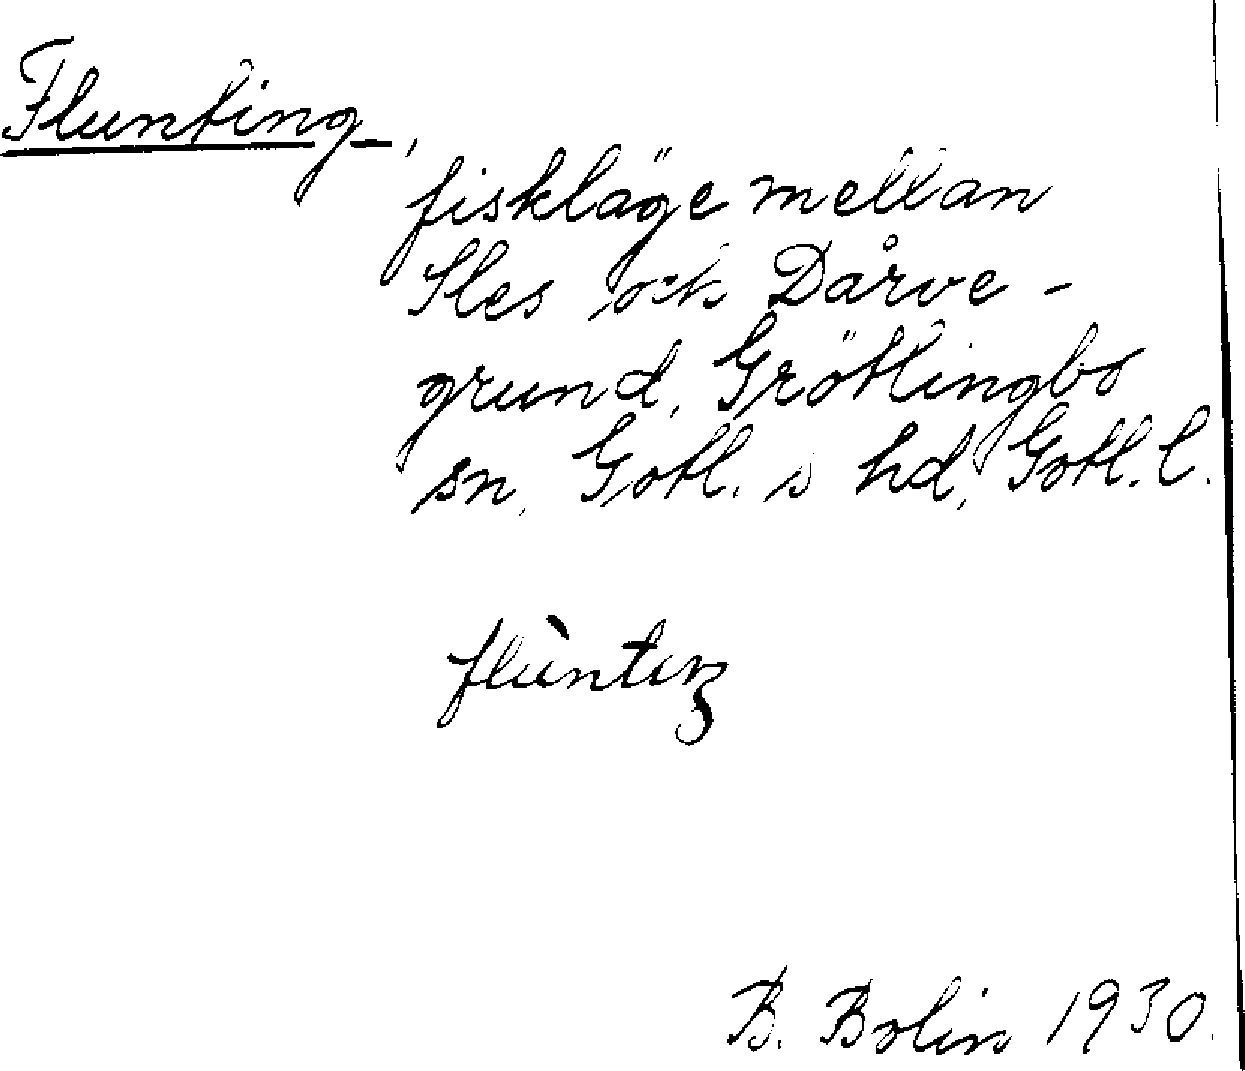 Flunting,
fiskläge mellan
Sles och Dårve-
grund, Grötlingbo
sn, Gotl. s hd, Gotl. l.
flùntıŋ
B. Bolin 1930.